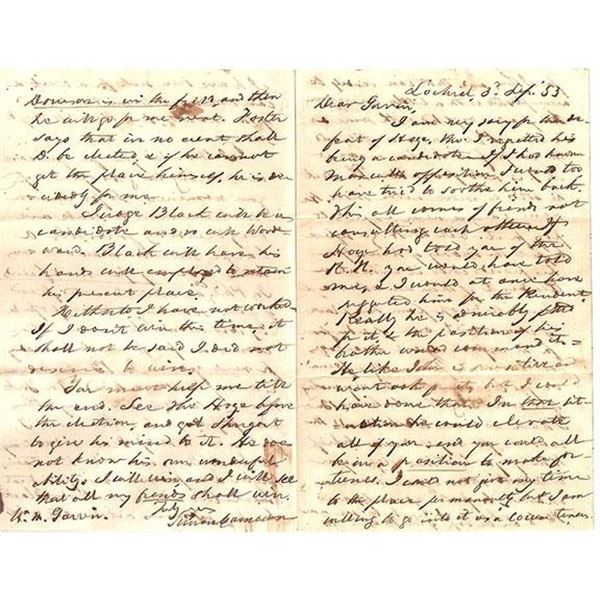 Lochiel, 3. Sep. '53
Dear Garvin,
I am very sorry for the de-
feat of Hoge, tho. I regretted his
being a candidate. If I had known
More with opposition I would too
have tried to soothe him back.
This all comes of friends not
consulting each other. If
Hoge had told you of the
R. R. you would have told
me, & I would at once have
for the President
Really he is admirably fitted
for it, & the position of his
brother would command it =
He like John is sensative and
wont ask for its, but I could
have done that. In that sit-
uation he could elevate
all of you, and you could all
be in a position to make for-
tunes. I could not give my time
to the place permanently but I am
willing to go into it as a
is in the first and then
he will go for me next. Foster
says that in no event shall
D. be elected, & if he cannot
get the place himself, he is de-
cidedly for me.
Judge Black will be a
candidate and so will Wood-
ward. Black will have his
hands well employed to retain
his present place.
Hitherto I have not worked
If I don't win this time, it
shall not be said I did not
deserve to win.
You must help me till
the end. See Hoge before
the election, and get
to give his mind to it. He does
not know his own wonderful
ability. I will win and I will see
that all my friends shall win.
Wm. M. Garvin.
Simon Cameron